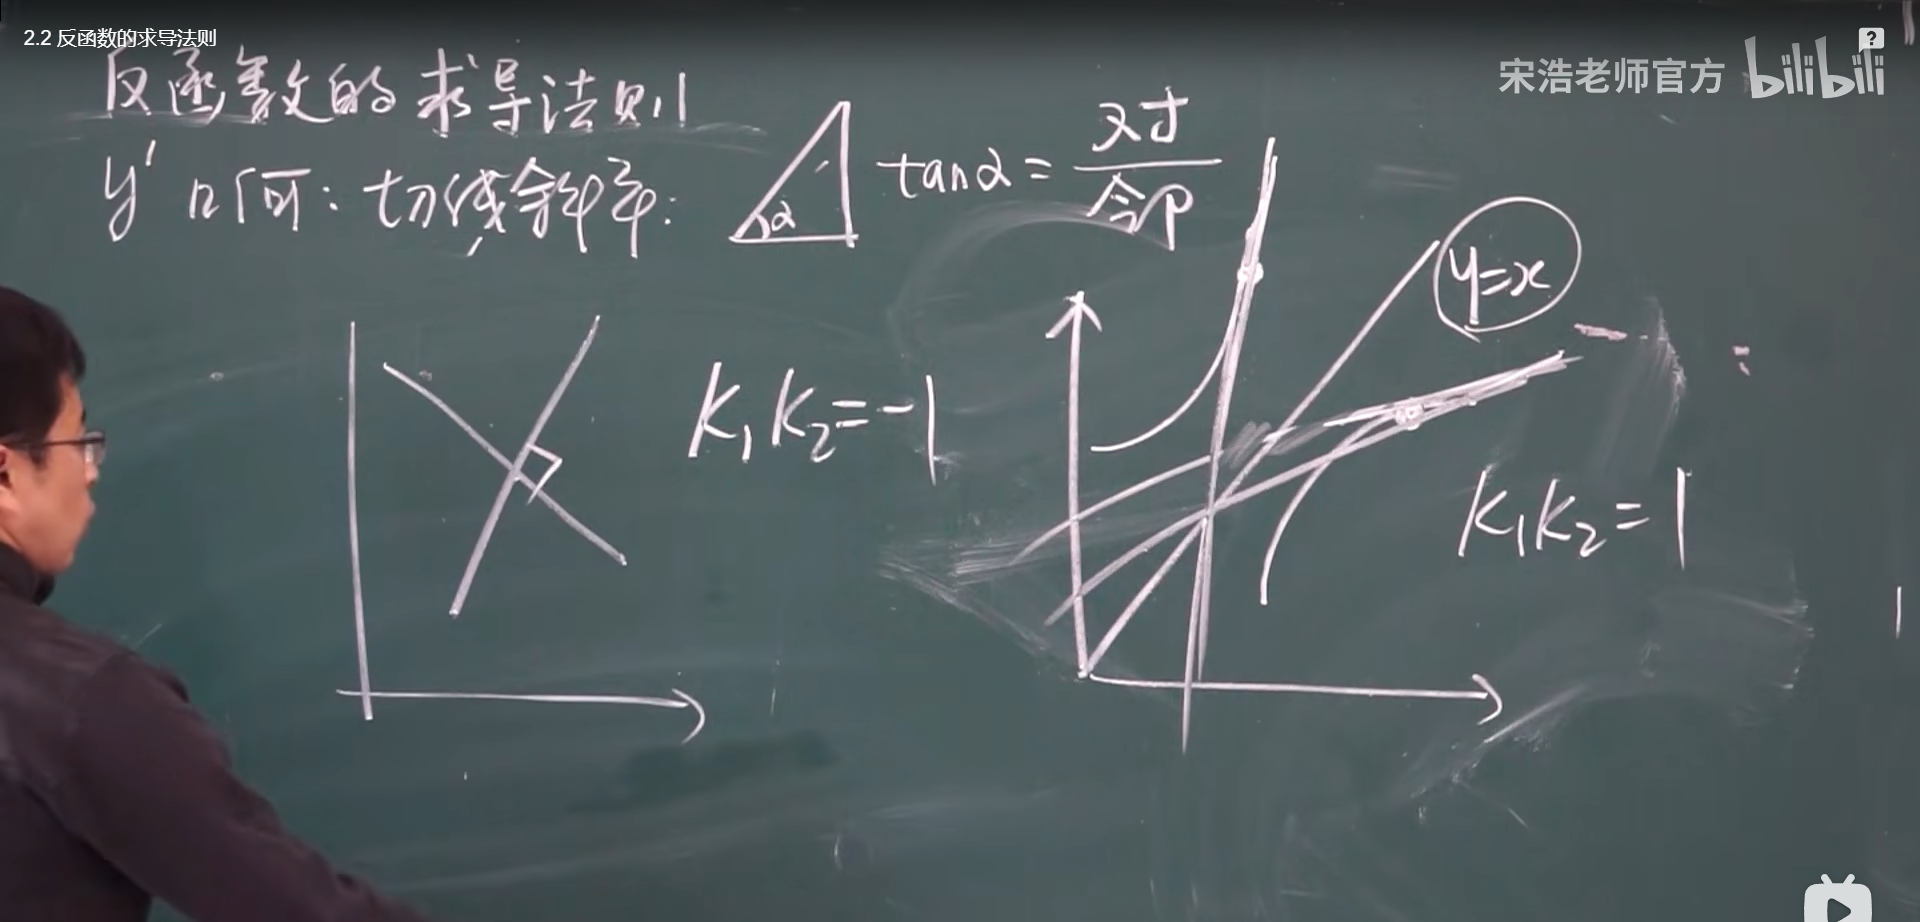 2.2 反函数的求导法则
宋浩老师官方 bilibili
反函数的求导法则
y' 几何: 切线斜率:
α
tanα = 对/邻
y=x
K₁K₂=-1
K₁K₂=1